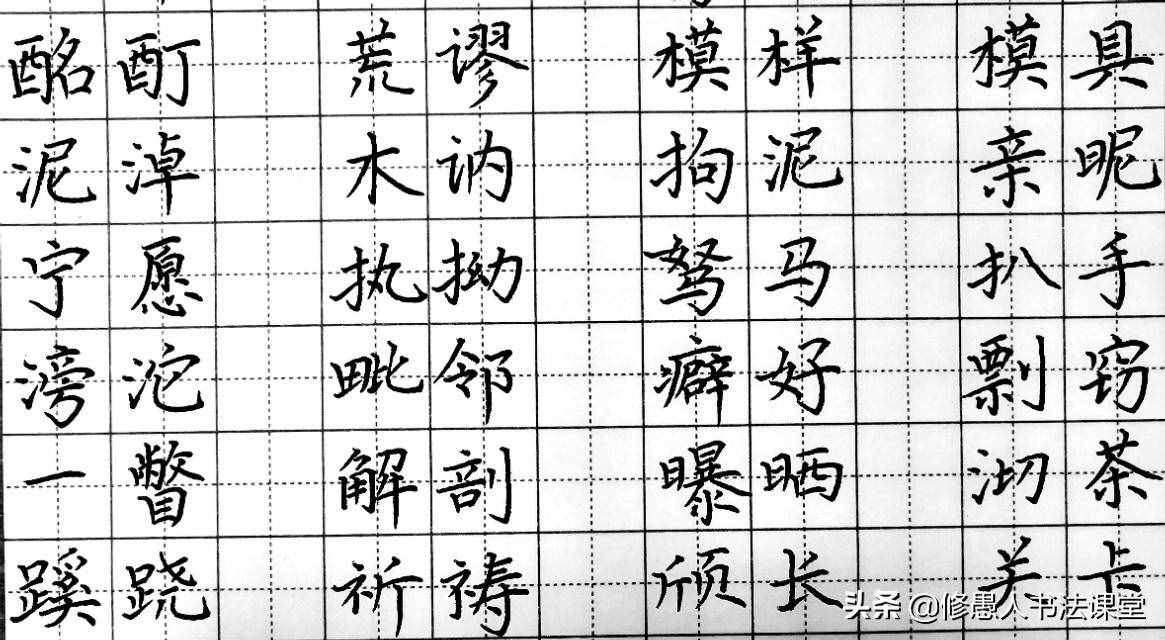 酩酊 荒谬 模样 模具
泥淖 木讷 拘泥 亲昵
宁愿 执拗 驽马 扒手
滂沱 毗邻 癖好 剽窃
一瞥 解剖 曝晒 沏茶
蹊跷 祈祷 颀长 关卡
头条 @修愚人书法课堂